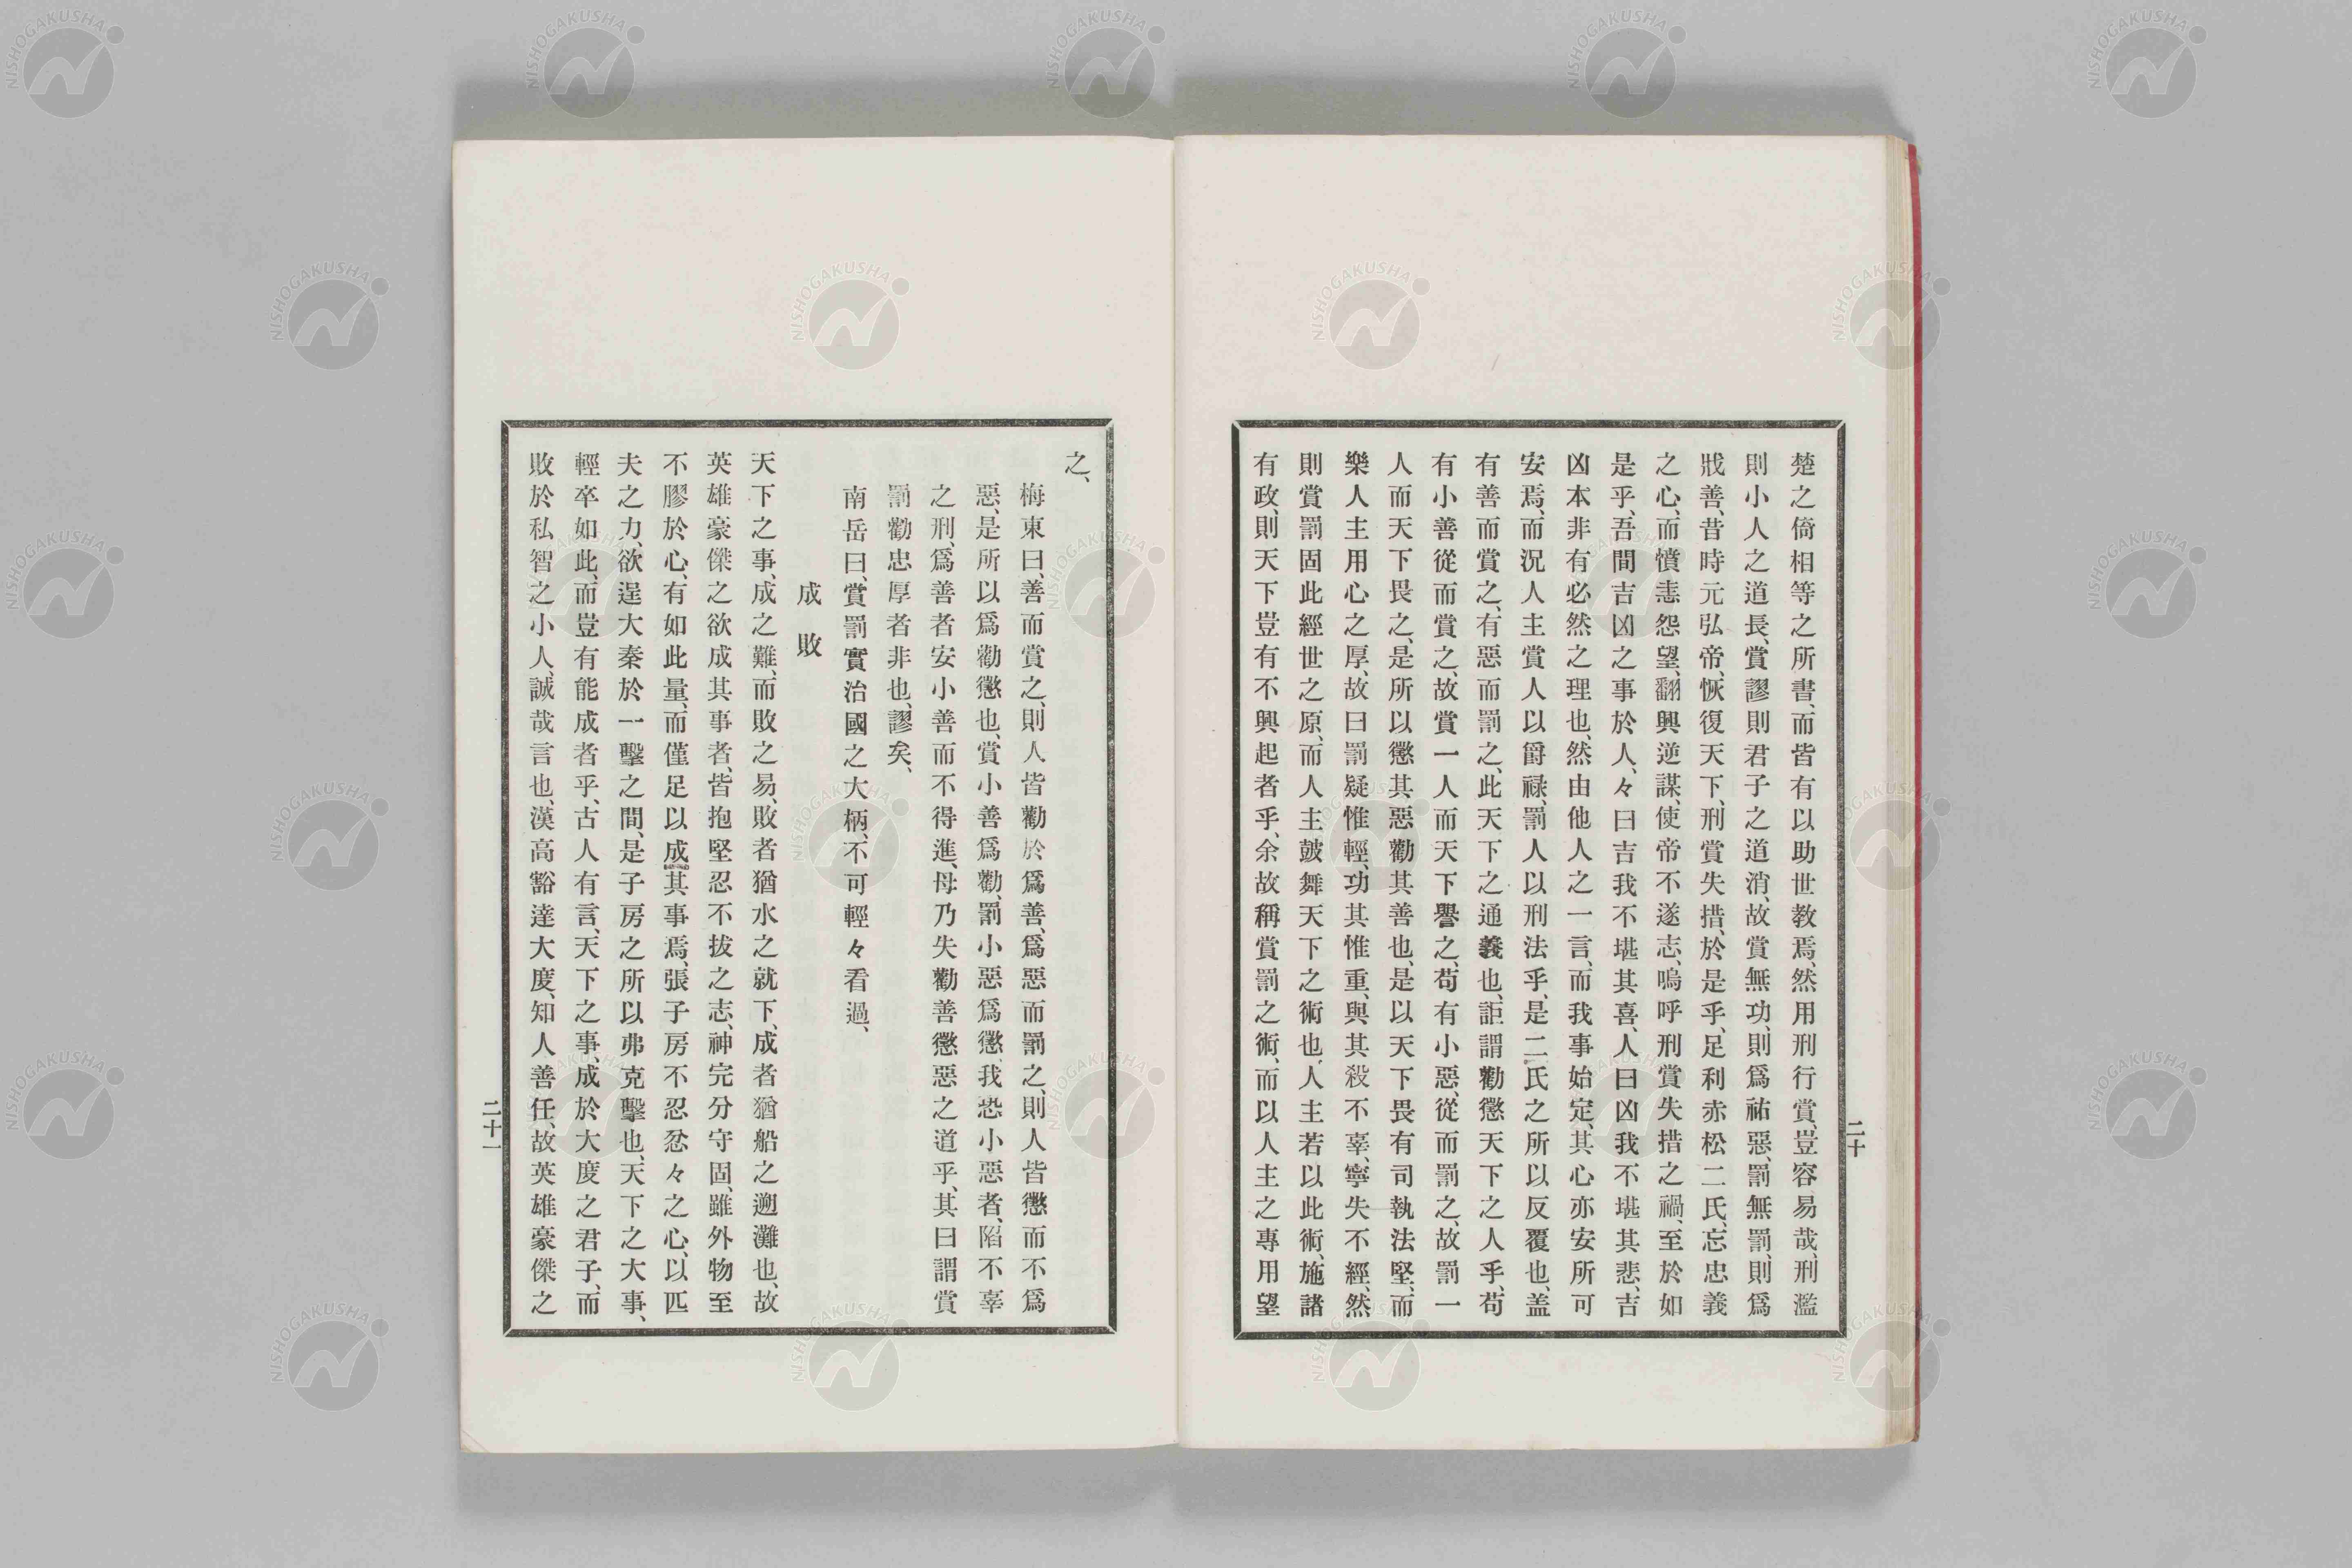 楚之倚相等之所書、而皆有以助世教焉、然用刑行賞、豈容易哉、刑濫
則小人之道長、賞謬則君子之道消、故賞無功、則爲祐惡、罰無罰、則爲
戕善、昔時元弘帝、恢復天下、刑賞失措、於是乎、足利赤松二氏、忘忠義
之心、而憤恚怨望、翻興逆謀、使帝不遂志、嗚呼刑賞失措之禍、至於如
是乎、吾間吉凶之事於人、々曰吉我不堪其喜、人曰凶我不堪其悲、吉
凶本非有必然之理也、然由他人之一言、而我事始定、其心亦安所可
安焉、而況人主賞人以爵祿、罰人以刑法乎、是二氏之所以反覆也、盖
有善而賞之、有惡而罰之、此天下之通義也、詎謂勸懲天下之人乎、苟
有小善從而賞之、故賞一人而天下譽之、苟有小惡、從而罰之、故罰一
人而天下畏之、是所以懲其惡勸其善也、是以天下畏有司執法堅、而
樂人主用心之厚、故曰罰疑惟輕、功其惟重、與其殺不辜、寧失不經、然
則賞罰固此經世之原、而人主皷舞天下之術也、人主若以此術、施諸
有政、則天下豈有不興起者乎、余故稱賞罰之術、而以人主之專用望
二十
之、
梅東曰、善而賞之、則人皆勸於爲善、爲惡而罰之、則人皆懲而不爲
惡、是所以爲勸懲也、賞小善爲勸、罰小惡爲懲、我恐小惡者、陷不辜
之刑、爲善者安小善而不得進、母乃失勸善懲惡之道乎、其曰謂賞
罰勸忠厚者非也、謬矣、
南岳曰、賞罰實治國之大柄、不可輕々看過、
成敗
天下之事、成之難、而敗之易、敗者猶水之就下、成者猶船之遡灘也、故
英雄豪傑之欲成其事者、皆抱堅忍不拔之志、神完分守固、雖外物至
不膠於心、有如此量、而僅足以成其事焉、張子房不忍忿々之心、以匹
夫之力、欲逞大秦於一擊之間、是子房之所以弗克擊也、天下之大事、
輕卒如此、而豈有能成者乎、古人有言、天下之事、成於大度之君子、而
敗於私智之小人、誠哉言也、漢高豁達大度、知人善任、故英雄豪傑之
二十一
NISHOGAKUSHA